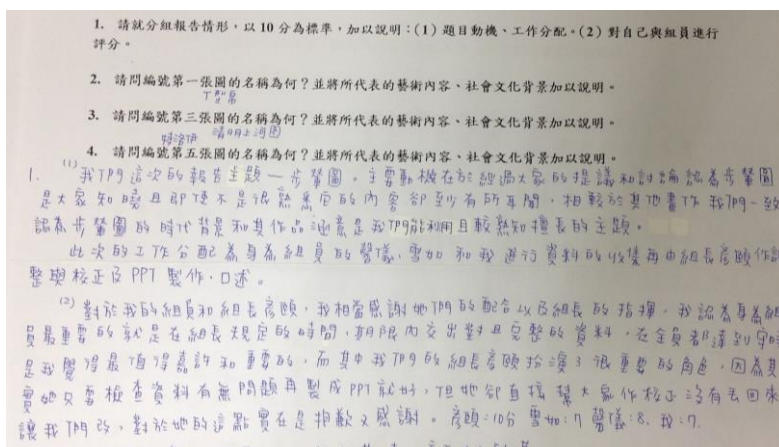 1. 請就分組報告情形，以 10 分為標準，加以說明：(1) 題目動機、工作分配。(2) 對自己與組員進行
評分。
2. 請問編號第一張圖的名稱為何？並將所代表的藝術內容、社會文化背景加以說明。
T型帛
3. 請問編號第三張圖的名稱為何？並將所代表的藝術內容、社會文化背景加以說明。
清明上河圖
4. 請問編號第五張圖的名稱為何？並將所代表的藝術內容、社會文化背景加以說明。
1. (1) 我們這次的報告主題—步輦圖。主要動機在於經過大家的提議和討論認為步輦圖
是大家知曉且即便不是很熟悉它的內容卻至少有所耳聞，相較於其他畫作我們一致
認為步輦圖的時代背景和其作品涵意是我們能利用且較熟知擅長的主題。
此次的工作分配為身為組員的馨儀、雪如和我進行資料的收集再由組長彥頤作調
整與校正及PPT製作、口述。
(2) 對於我的組員和組長彥頤，我相當感謝她們的配合以及組長的指揮，我認為身為組
員最重要的就是在組長規定的時間，期限內交出對且完整的資料，在全員都達到守時
是我覺得最值得嘉許和重要的，而其中我們的組長彥頤扮演了很重要的角色，因為其
實她只要檢查資料有無問題再製成PPT就好，但她卻直接幫大家作校正沒有丟回來
讓我們改，對於她的這點實在是抱歉又感謝。彥頤:10分 雪如:7 馨儀:8. 我:7.